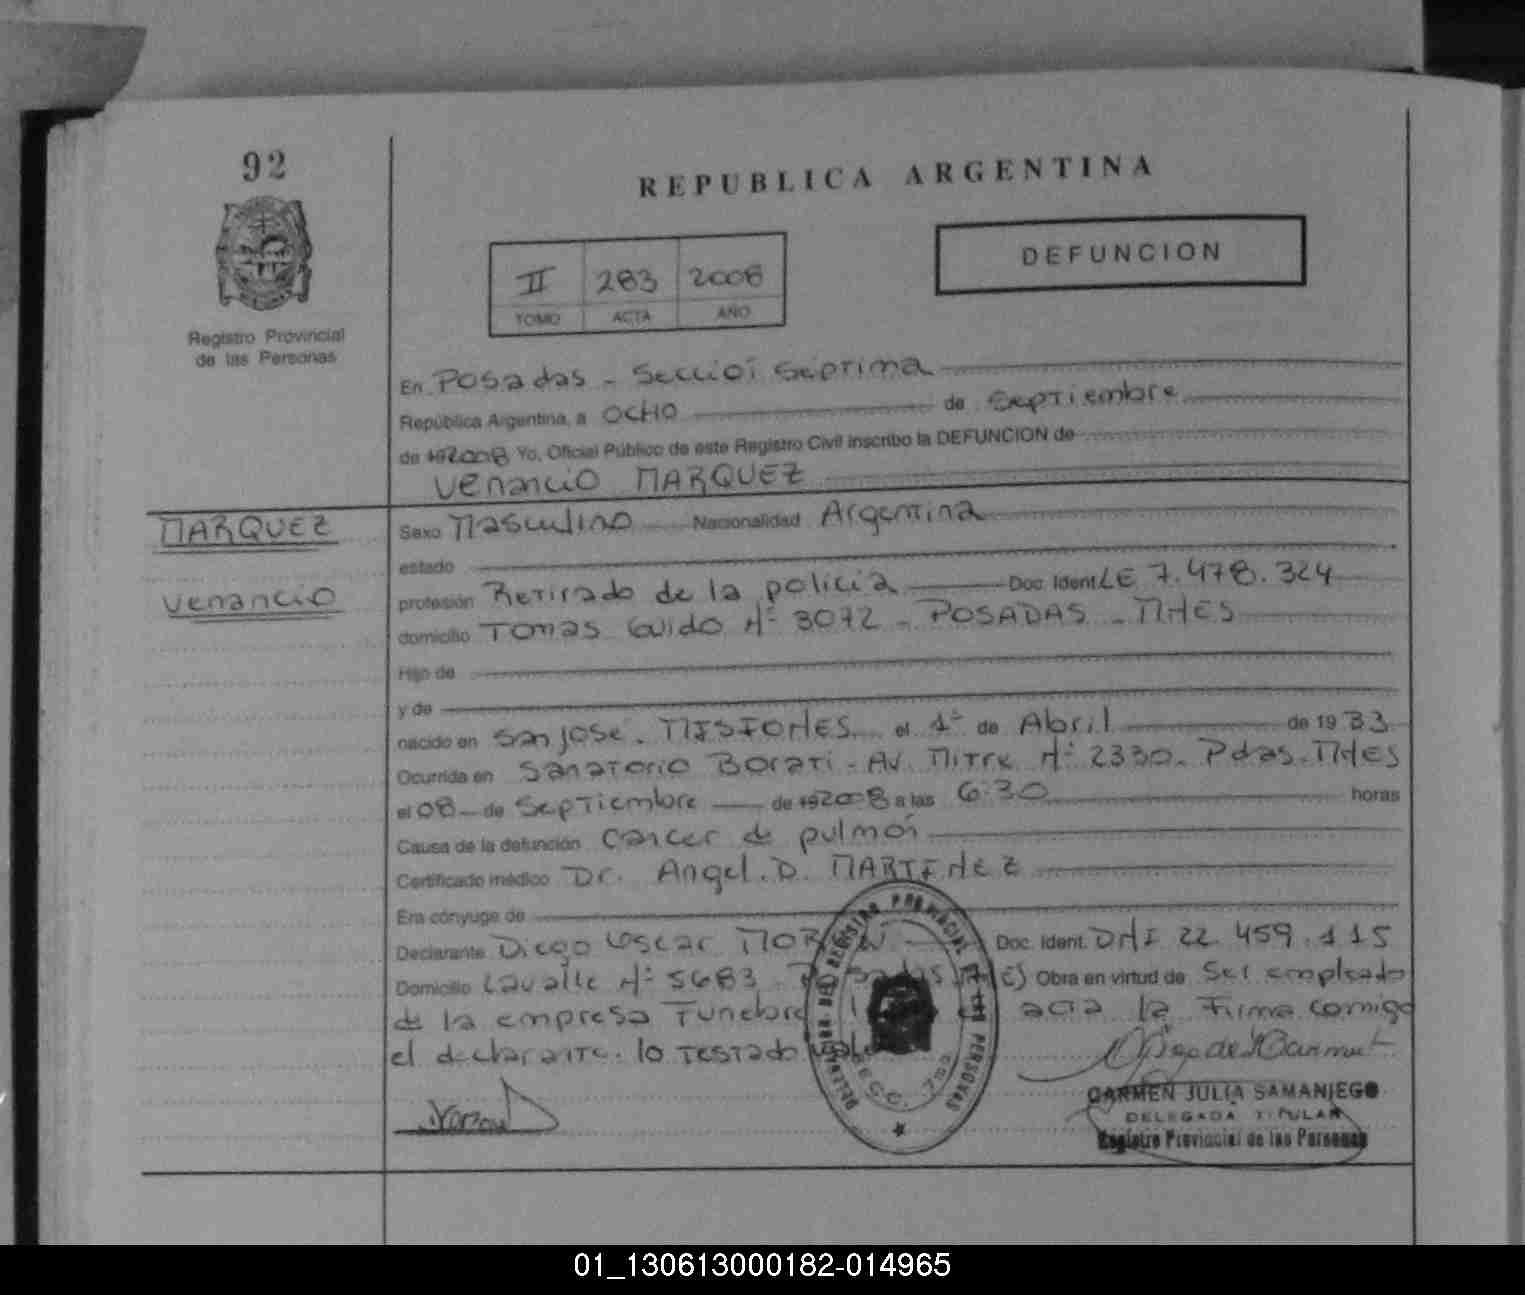 92
Registro Provincial
de las Personas
REPUBLICA ARGENTINA
II 283 2008
TOMO ACTA AÑO
DEFUNCION
En Posadas - Seccioń Septima
República Argentina, a OCHO de Septiembre
de 192008 Yo, Oficial Público de este Registro Civil inscribo la DEFUNCION de
Venancio MARQUEZ
MARQUEZ
Venancio
Sexo Masculino Nacionalidad Argentina
estado
profesión Retirado de la policia Doc. Ident. LE 7.478.324
domicilio Tomas Guido Nº 3072 - POSADAS - MNES
Hijo de
y de
nacido en San José - MISIONES el 1º de Abril de 1933
Ocurrida en Sanatorio Borati - Av. Mitre Nº 2330 - Pdas - MNES
el 08 de Septiembre de 192008 a las 6:30 horas
Causa de la defunción Cancer de pulmoń
Certificado médico Dr. Angel. D. MARTINEZ
Era cónyuge de
Declarante Diego Oscar Doc. Ident. DNI 22.459.115
Domicilio Lavalle Nº 5683 - Obra en virtud de Ser empleado
de la empresa Funebre acta la Firma comigo
el declarante. lo testado
DELEGACION DEL REGISTRO PROVINCIAL DE LAS PERSONAS
SECC. 7ma
CARMEN JULIA SAMANIEGO
DELEGADA TITULAR
Registro Provincial de las Personas
01_130613000182-014965